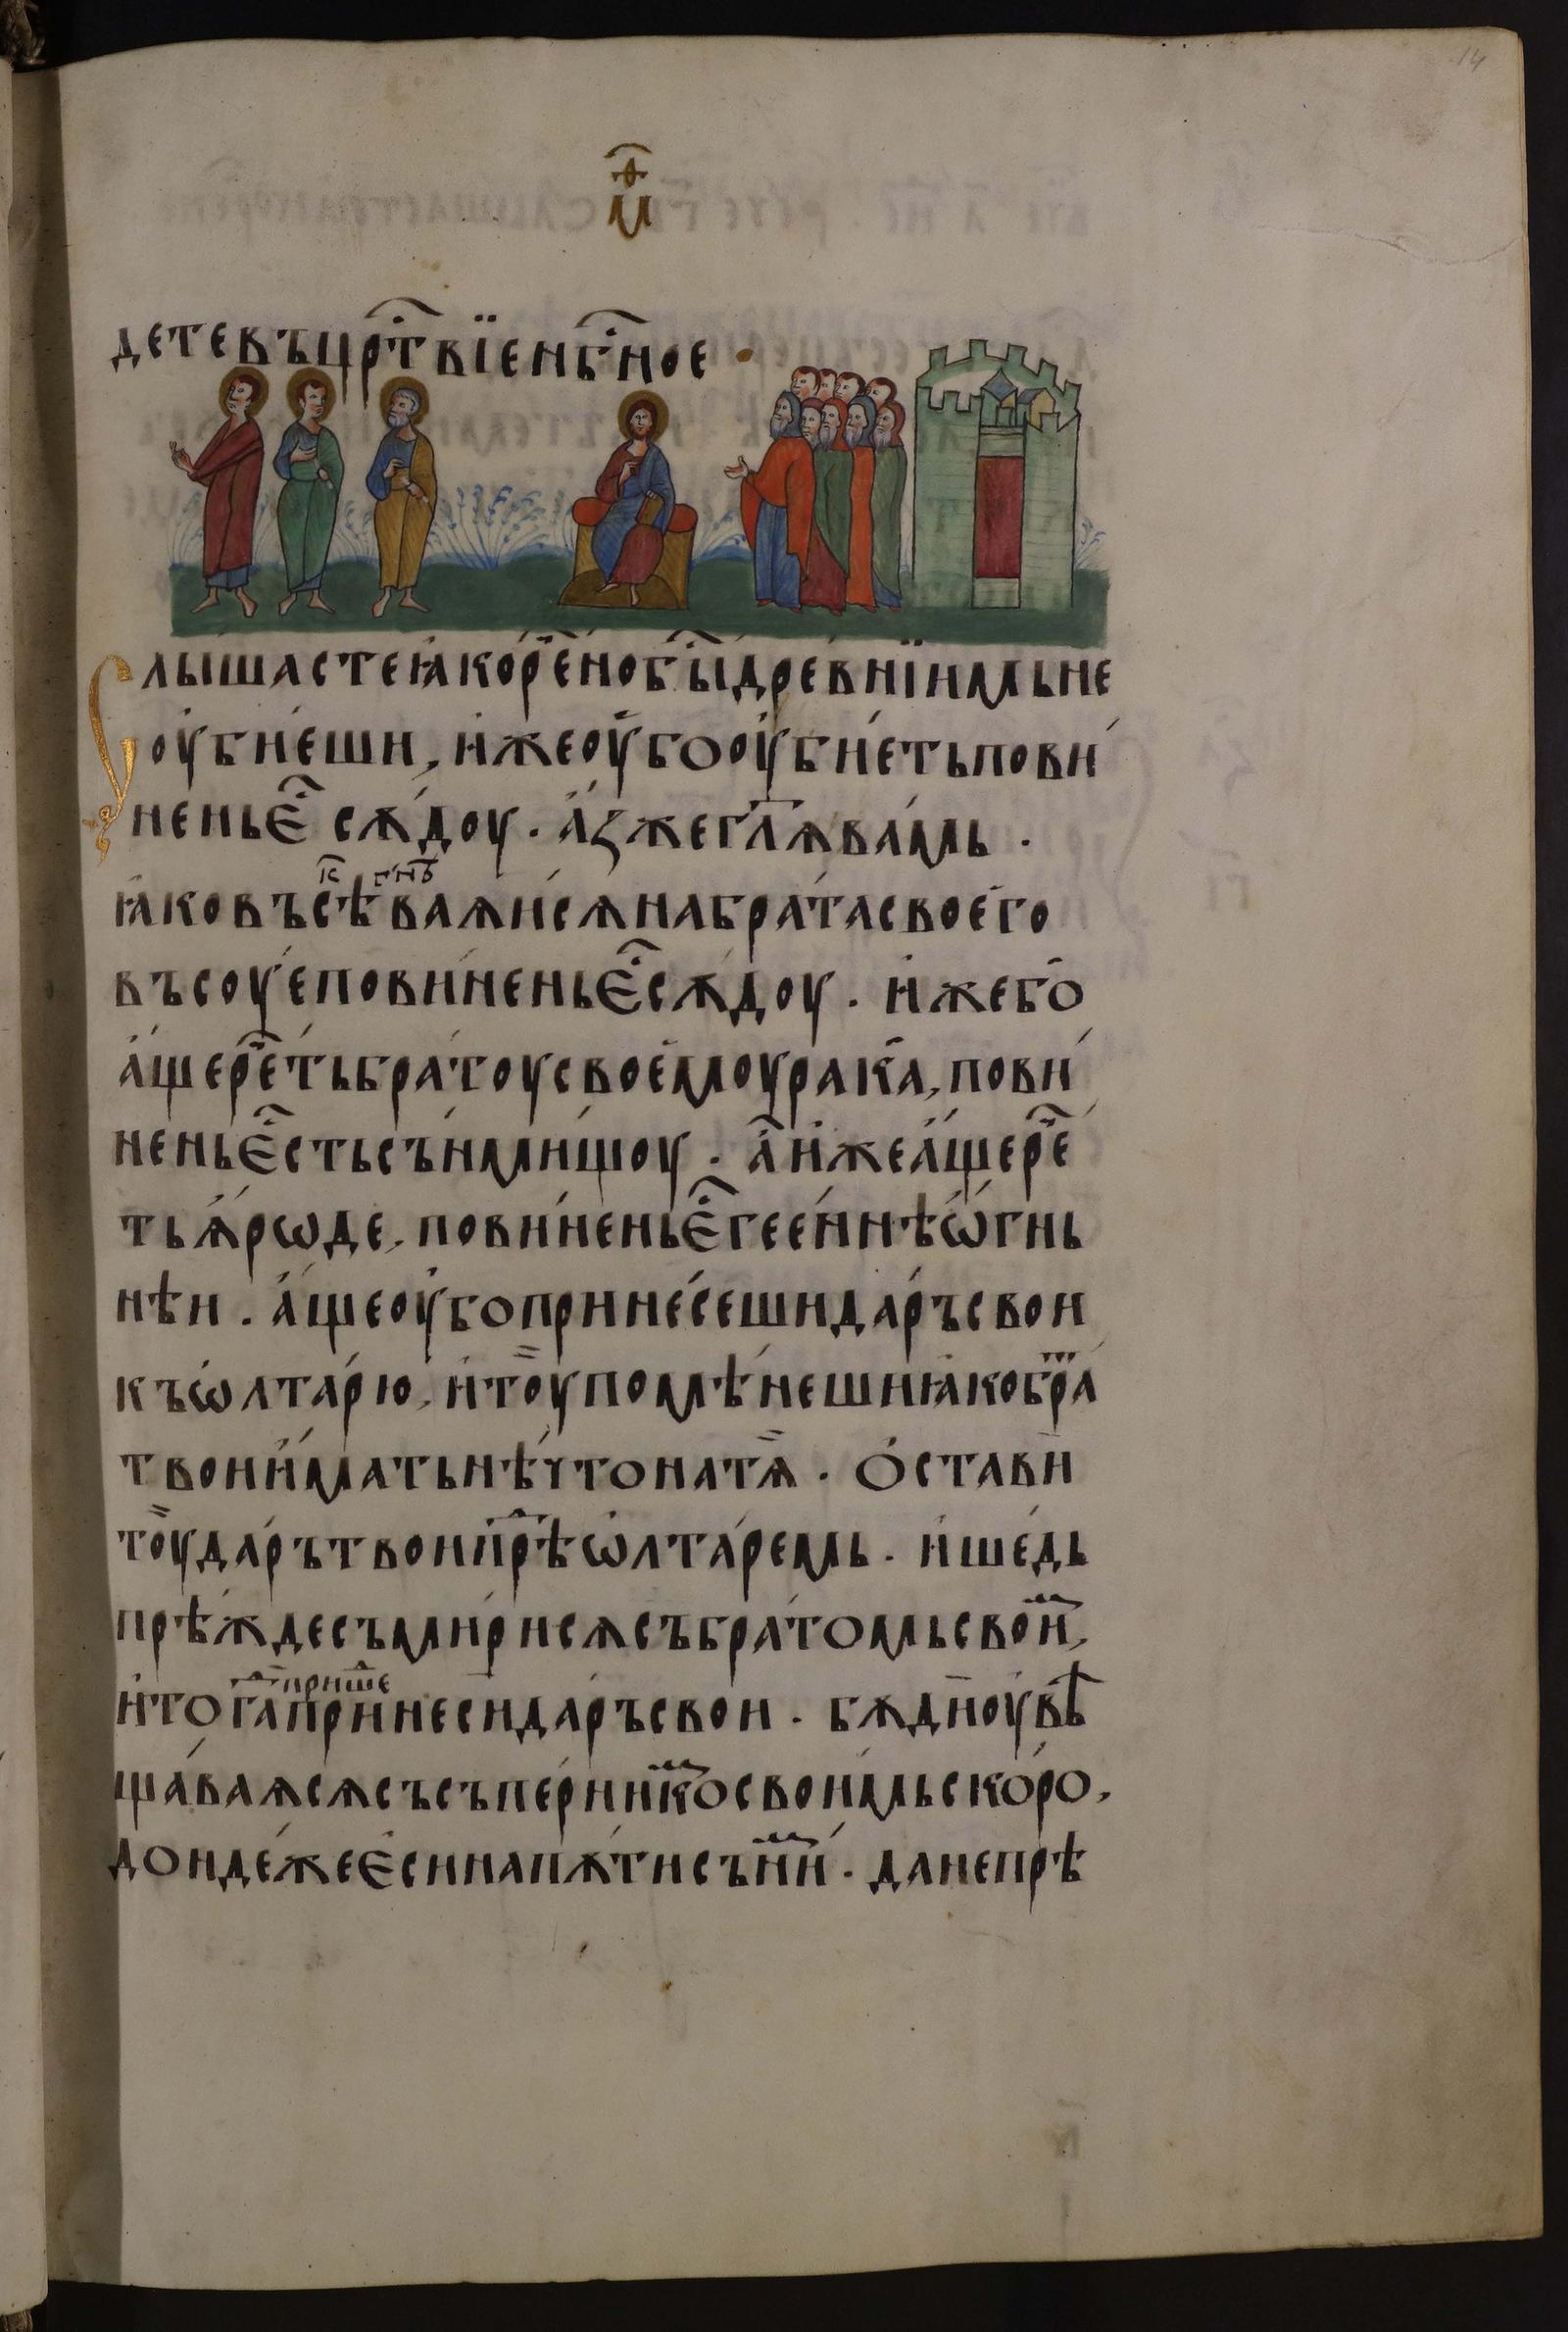 14
м҃ѳ
детевъцр҃твїенбⷭ҇ное ·
Слышастеꙗкоре́нобы́дре́внїимльне
оубїе́ши, и҆жеоу҆бооу҆бїе́тьпови́
неньє҆сѫ́доу · а҆́зжегл҃ѧва́мь ·
ꙗ҆ковъсѣ́ваѧ҆исѧнабра́тасвоего
въсоу́еповиненьє҆сѫ́доу · и҆жебо
а҆́щере́тьбра́тоусвоемоурака, пови́
неньє҆́стьсъни́мищоу · а҆и҆жеа҆́щере
тьѫ҆́рѡде, пови́неньє҆геѐннѣѡ҆́гнь
нѣи · а҆́щеоу҆бопринесе́шида́ръсвои
къѡ҆лта́рю, и҆тоупомѣ́нешиꙗ҆кобра́
твоии҆́матьнѣ́чтонатѧ · О҆стави
тоуда́рътвоипрⷣѣѡ҆лта́ремь · и҆ше́дь
прѣ́ждесъмирисѧсъбра́томьсвои,
и҆тогⷣаприше
принесида́ръсвои · бѫди оувѣ
ща́ваѧсѧсъсъпе́рникосвоимьско́ро,
дондежеє҆синапѫ́тисъни · данепрѣ